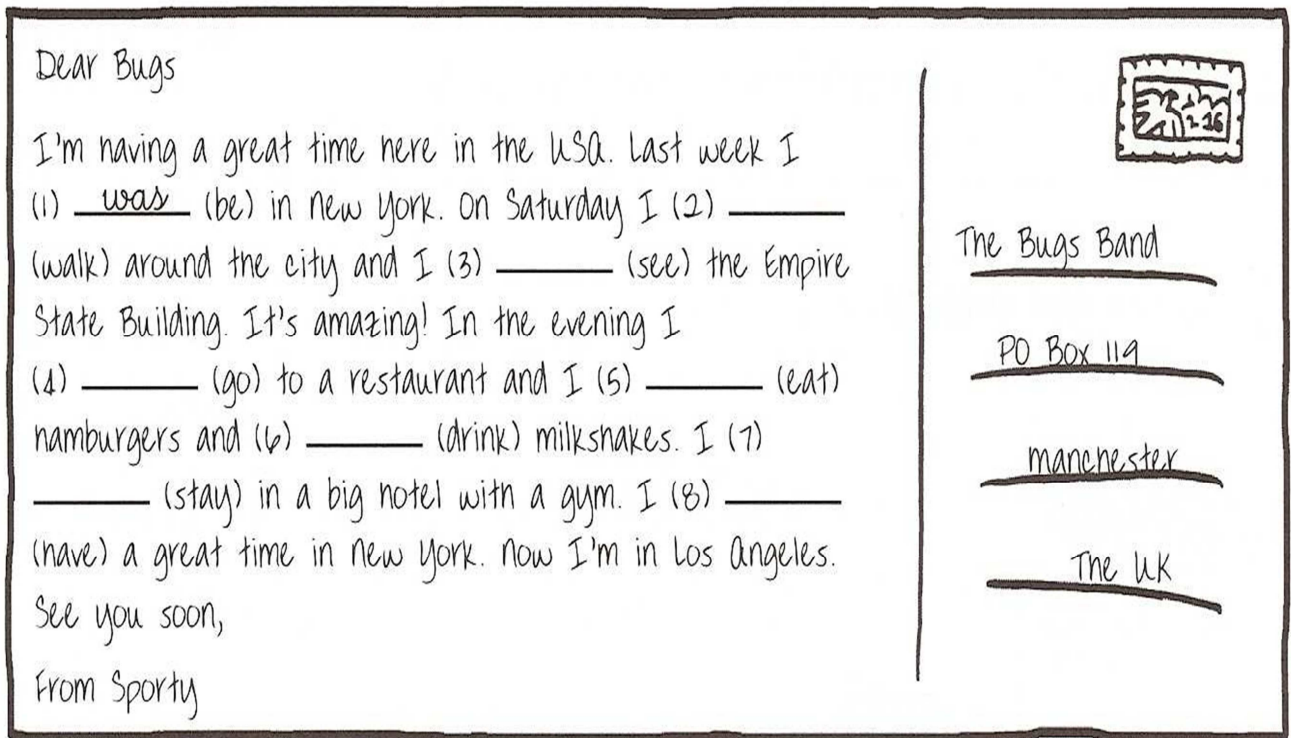 Dear Bugs
I'm having a great time here in the USA. Last week I
(1) was (be) in New York. On Saturday I (2) ______
(walk) around the city and I (3) ______ (see) the Empire
State Building. It's amazing! In the evening I
(4) ______ (go) to a restaurant and I (5) ______ (eat)
hamburgers and (6) ______ (drink) milkshakes. I (7)
______ (stay) in a big hotel with a gym. I (8) ______
(have) a great time in New York. Now I'm in Los Angeles.
See you soon,
From Sporty
The Bugs Band
PO Box 119
Manchester
The UK